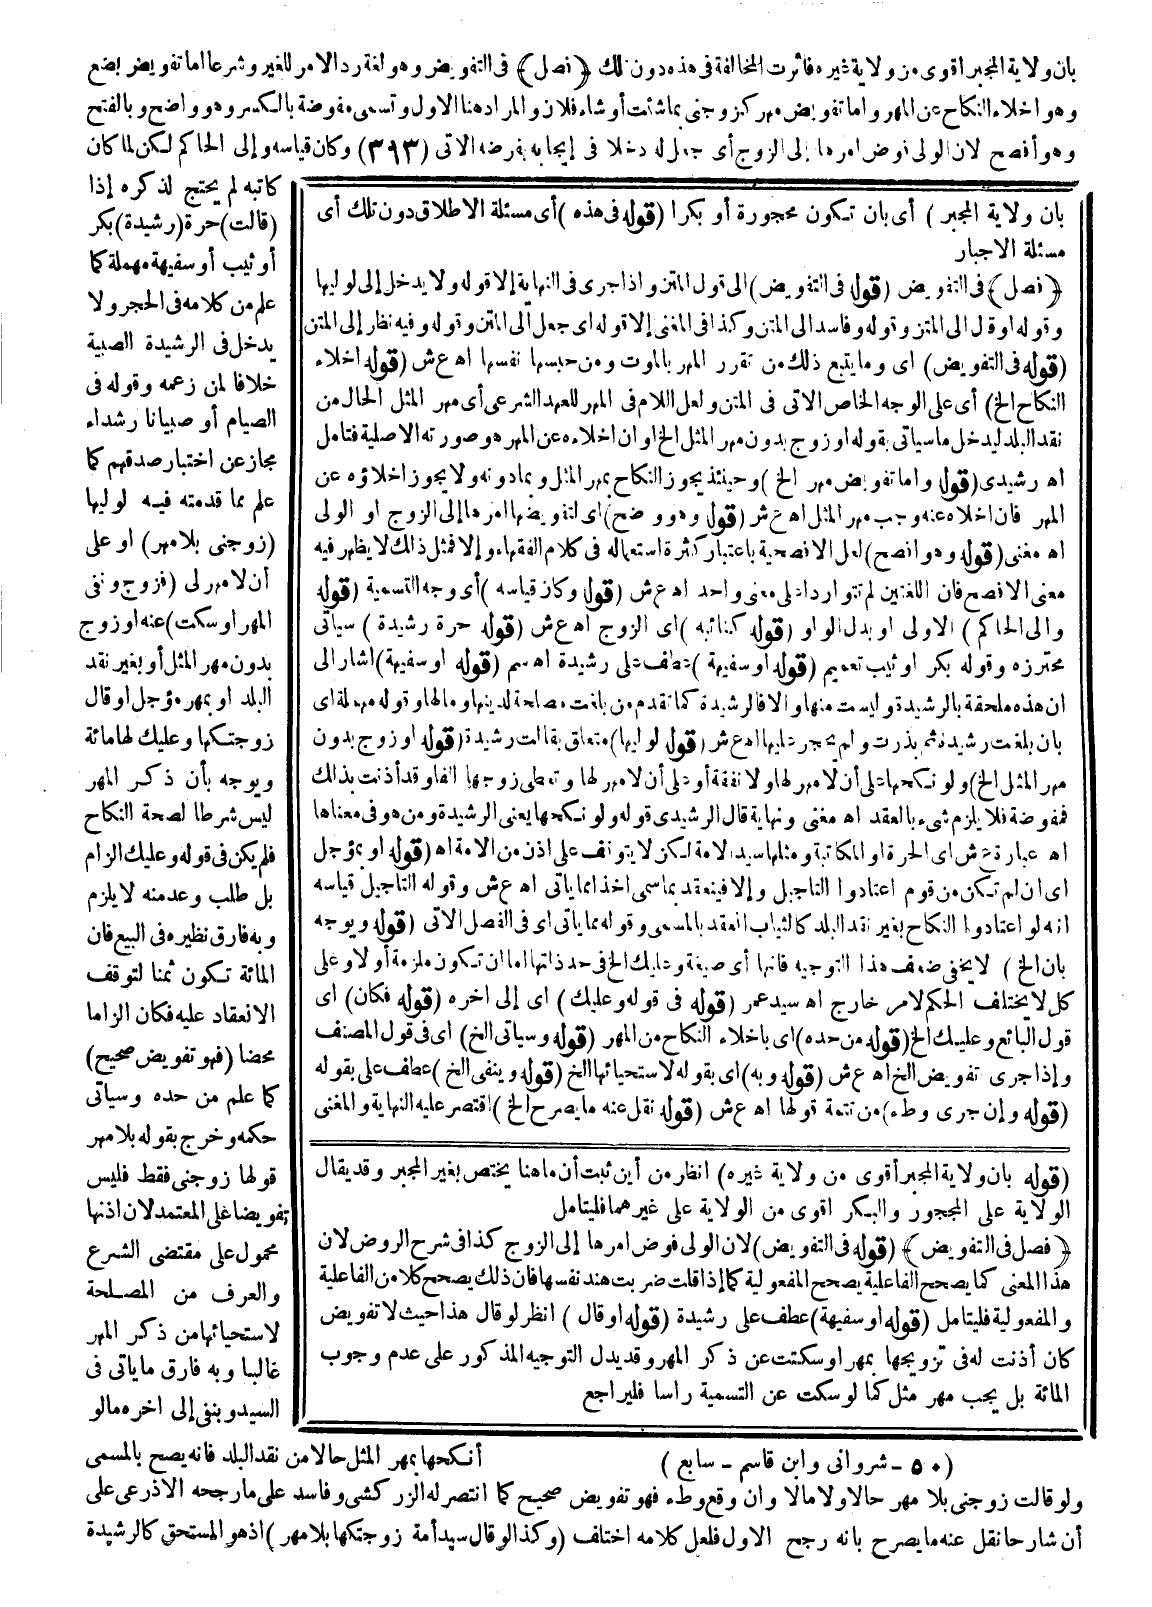 بان ولاية المجبر اقوى من ولاية غيره فأثرت المخالفة فى هذه دون تلك ﴿ فصل ﴾ فى التفويض وهو لغة رد الامر للغير وشرعا اما تفويض بضع
وهو اخلاء النكاح عن المهر واما تفويض مهر كزوجنى بما شئت أو شاء فلان والمراد هنا الاول وتسمى مفوضة بالكسر وهو واضح وبالفتح
وهو أفصح لان الولى فوض امرها إلى الزوج أى جعل له دخلا فى إيجابه بفرضه الاتى (٣٩٣) وكان قياسه وإلى الحاكم لكن لما كان
كاتبه لم يحتج لذكره إذا
(قالت) حرة (رشيدة) بكر
أو ثيب أو سفيهة مهملة كما
علم من كلامه فى الحجر ولا
يدخل فى الرشيدة الصبية
خلافا لمن زعمه وقوله فى
الصيام أو صبيانا رشداء
مجاز عن اختبار صدقهم كما
علم مما قدمته فيه لوليها
(زوجنى بلا مهر) او على
أن لا مهر لى (فزوج ونفى
المهر او سكت) عنه او زوج
بدون مهر المثل أو بغير نقد
البلد او بمهر مؤجل او قال
زوجتكها وعليك لها مائة
ويوجه بأن ذكر المهر
ليس شرطا لصحة النكاح
فلم يكن فى قوله وعليك الزام
بل طلب وعدمنه لا يلزم
وبه فارق نظيره فى البيع فان
المائة تكون ثمنا لتوقف
الانعقاد عليه فكان الزاما
محضا (فهو تفويض صحيح)
كما علم من حده وسياتى
حكمه وخرج بقوله بلا مهر
قولها زوجنى فقط فليس
تفويضا على المعتمد لان اذنها
محمول على مقتضى الشرع
والعرف من المصلحة
لاستحيائها من ذكر المهر
غالبا وبه فارق ما ياتى فى
السيد وبنفى إلى اخره ما لو
أنكحها بمهر المثل حالا من نقد البلد فانه يصح بالمسمى
ولو قالت زوجنى بلا مهر حالا ولا مالا وان وقع وطء فهو تفويض صحيح كما انتصر له الزركشى وفاسد على ما رجحه الاذرعى على
أن شارحا نقل عنه ما يصرح بانه رجح الاول فلعل كلامه اختلف (وكذا لو قال سيد أمة زوجتكها بلا مهر) اذ هو المستحق كالرشيدة
بان ولاية المجبر) أى بان تكون محجورة أو بكرا (قوله فى هذه) أى مسئلة الاطلاق دون تلك أى
مسئلة الاجبار
﴿ فصل ﴾ فى التفويض (قوله فى التفويض) الى قول المتن واذا جرى فى النهاية إلا قوله ولا يدخل إلى لوليها
وقوله او قال الى المتن وقوله وفاسد الى المتن وكذا فى المغنى إلا قوله اى جعل الى المتن وقوله وفيه نظار إلى المتن
(قوله فى التفويض) اى وما يتبع ذلك من تقرر المهر بالموت ومن حبسها نفسها اه ع ش (قوله اخلاء
النكاح الخ) أى على الوجه الخاص الاتى فى المتن ولعل اللام فى المهر للعهد الشرعى أى مهر المثل الحال من
نقد البلد ليدخل ما سياتى بقوله او زوج بدون مهر المثل الخ او ان اخلاءه عن المهر هو صورته الاصلية فتامل
اه رشيدى (قوله واما تفويض مهر الخ) وحينئذ يجوز النكاح بمهر المثل وبما دونه ولا يجوز اخلاؤه عن
المهر فان اخلاه عنه وجب مهر المثل اه ع ش (قوله وهو وضح) اى لتفويضها امرها إلى الزوج او الولى
اه مغنى (قوله وهو افصح) لعل الافصحية باعتبار كثرة استعماله فى كلام الفقهاء وإلا فمثل ذلك لا يظهر فيه
معنى الافصح فان اللغتين لم تتواردا على معنى واحد اه ع ش (قوله وكان قياسه) أى وجه التسمية (قوله
والى الحاكم) الاولى او بدل الواو (قوله كنائبه) اى الزوج اه ع ش (قوله حرة رشيدة) سياتى
محترزه وقوله بكر او ثيب تعميم (قوله او سفيهة) عطف على رشيدة اه سم (قوله او سفيهة) اشار الى
ان هذه ملحقة بالرشيدة وليست منها والا فالرشيدة كما تقدم من بلغت مصلحة لدينها ومالها وقوله مهملة اى
بان بلغت رشيدة ثم بذرت ولم يحجر عليها اه ع ش (قوله لوليها) متعلق بقالت رشيدة (قوله او زوج بدون
مهر المثل الخ) ولو نكحها على أن لا مهر لها ولا نفقة أو على أن لا مهر لها وتعطى زوجها الفا وقد أذنت بذلك
فمفوضة فلا يلزم شىء بالعقد اه مغنى ونهاية قال الرشيدى قوله ولو نكحها يعنى الرشيدة ومن هو فى معناها
اه عبارة ع ش اى الحرة او المكاتبة ومثلها سيد الامة لكن لا يتوقف على اذن من الامة اه (قوله او بمؤجل
اى ان لم تكن من قوم اعتادوا التاجيل وإلا فينعقد بما سمى اخذا مما ياتى اه ع ش وقوله التاجيل قياسه
انه لو اعتادوا النكاح بغير نقد البلد كالثياب انعقد بالمسمى وقوله مما ياتى اى فى الفصل الاتى (قوله ويوجه
بان الخ) لا يخفى ضعف هذا التوجيه فانها أى صيغة وعليك الخ فى حد ذاتها اما ان تكون ملزمة أو لا وعلى
كل لا يختلف الحكم لامر خارج اه سيد عمر (قوله فى قوله وعليك) اى إلى اخره (قوله فكان) اى
قول البائع وعليك الخ (قوله من حده) اى باخلاء النكاح من المهر (قوله وسياتى الخ) اى فى قول المصنف
وإذا جرى تفويض الخ اه ع ش (قوله وبه) اى بقوله لاستحيائها الخ (قوله وينفى الخ) عطف على بقوله
(قوله وإن جرى وطء) من تتمة قولها اه ع ش (قوله نقل عنه ما يصرح الخ) اقتصر عليه النهاية والمغنى
(قوله بان ولاية المجبر أقوى من ولاية غيره) انظر من أين ثبت أن ما هنا يختص بغير المجبر وقد يقال
الولاية على المحجور والبكر اقوى من الولاية على غيرهما فليتامل
﴿ فصل فى التفويض ﴾ (قوله فى التفويض) لان الولى فوض امرها إلى الزوج كذا فى شرح الروض لان
هذا المعنى كما يصحح الفاعلية يصحح المفعولية كما إذا قلت ضربت هند نفسها فان ذلك يصحح كلا من الفاعلية
والمفعولية فليتامل (قوله او سفيهة) عطف على رشيدة (قوله او قال) انظر لو قال هذا حيث لا تفويض
كان أذنت له فى تزويجها بمهر او سكتت عن ذكر المهر وقد يدل التوجيه المذكور على عدم وجوب
المائة بل يجب مهر مثل كما لو سكت عن التسمية راسا فليراجع
(٥٠ - شروانى وابن قاسم - سابع)